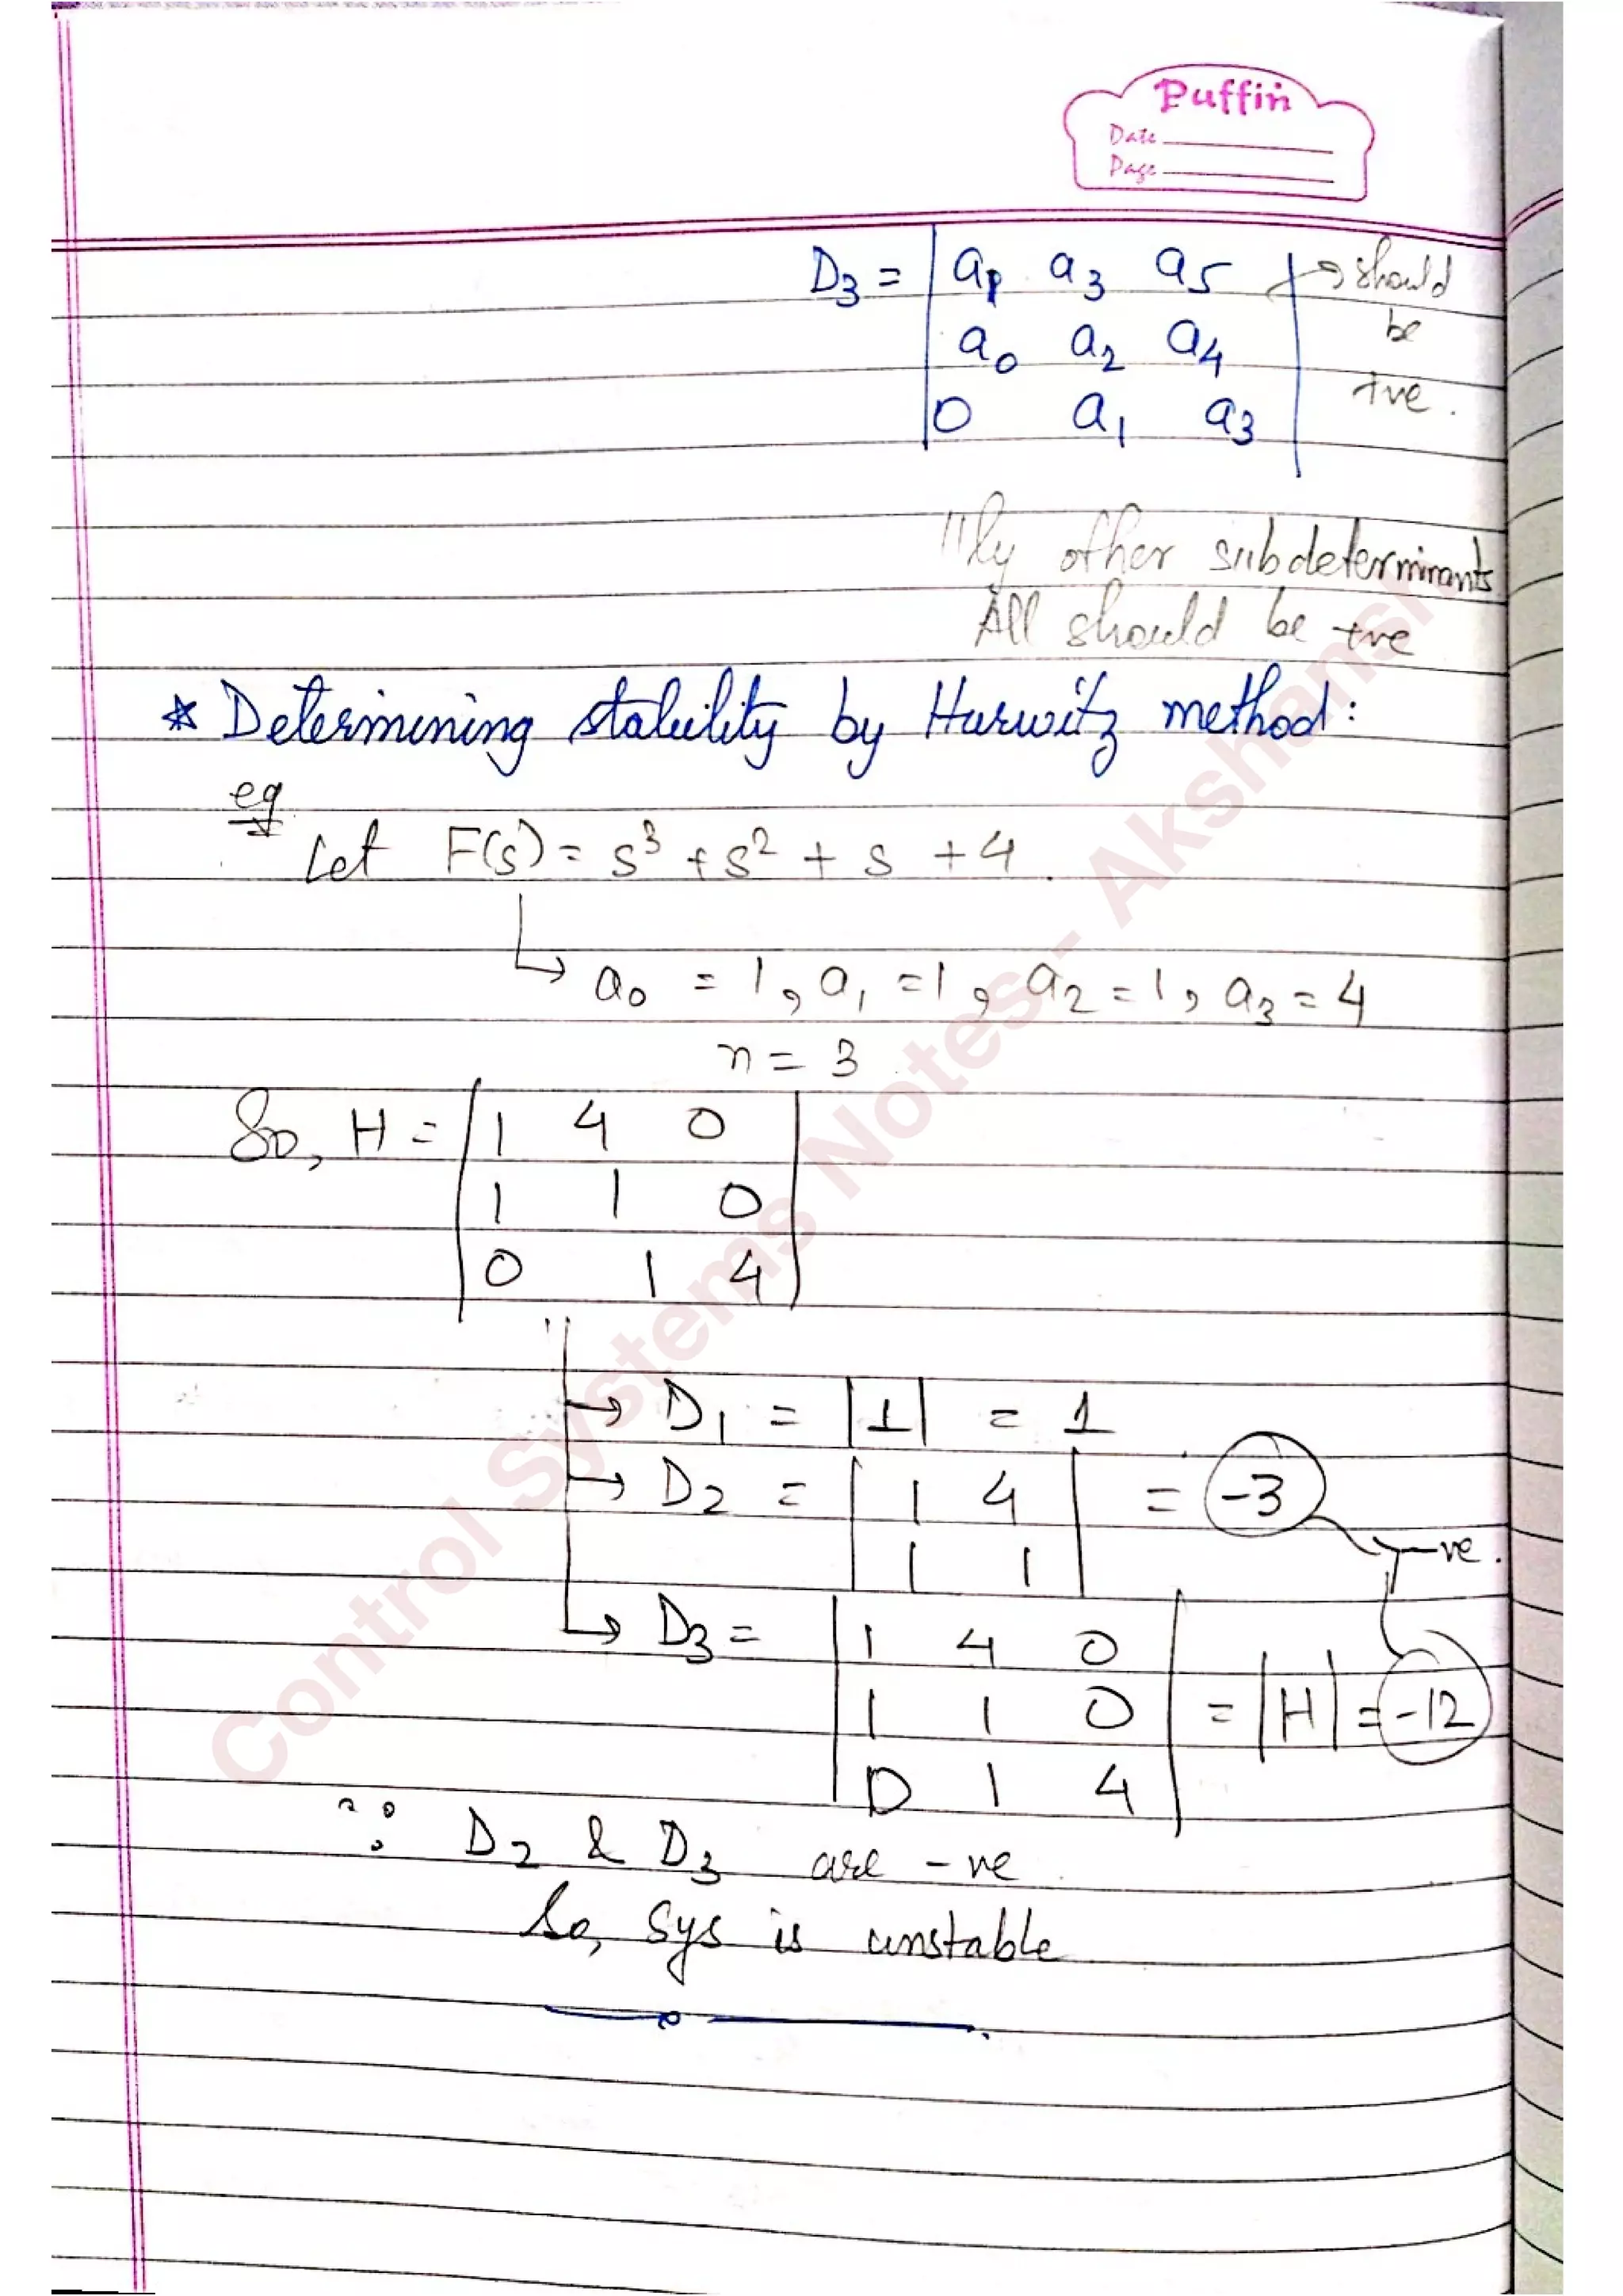 Puffin
Date
Page
D3 = | a1 a3 a5 | → should
| a0 a2 a4 | be
| 0 a1 a3 | +ve.
|||ly other subdeterminants
All should be +ve
* Determining stability by Hurwitz method:
eg
Let F(s) = s³ + s² + s + 4.
↳ a0 = 1, a1 = 1, a2 = 1, a3 = 4
n = 3
So, H = | 1 4 0 |
| 1 1 0 |
| 0 1 4 |
→ D1 = |1| = 1
→ D2 = | 1 4 | = -3
| 1 1 | -ve.
↳ D3 = | 1 4 0 |
| 1 1 0 | = |H| = -12
| 0 1 4 |
∵ D2 & D3 are -ve
So, sys is unstable
Control Systems Notes - Akshansh